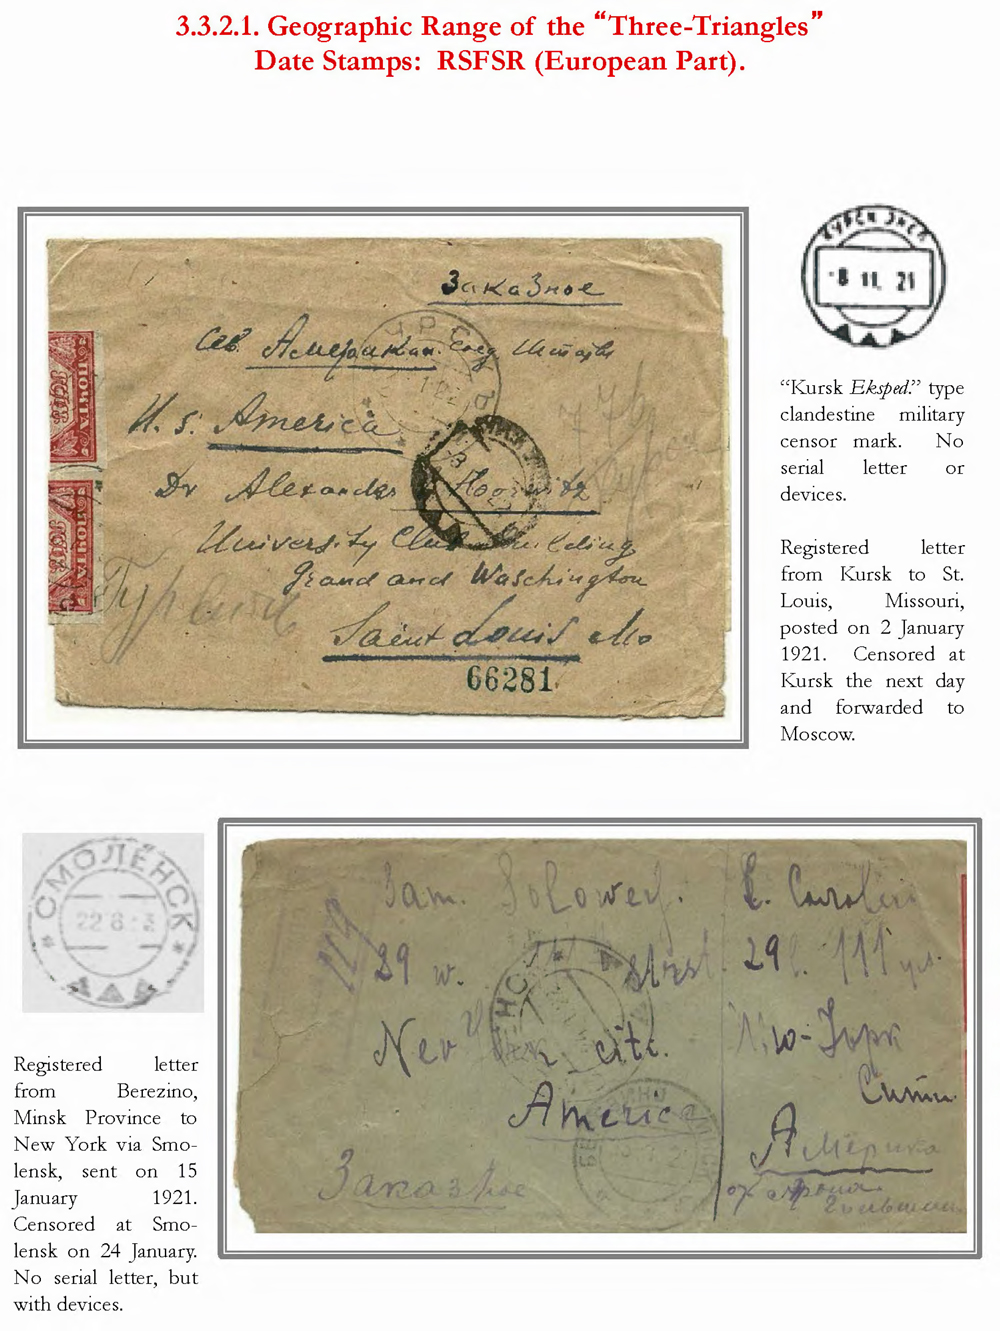 3.3.2.1. Geographic Range of the “Three-Triangles”
Date Stamps: RSFSR (European Part).
Заказное
Сев. Американ. Соед Штаты
U. S. America
Dr Alexander Horwitz
University Club Building
Grand and Waschington
Saint Louis Mo
66281
ПОЧТА
ПОЧТА
КУРСК ЭКСП
-8 11. 21
“Kursk Eksped.” type
clandestine military
censor mark. No
serial letter or
devices.
Registered letter
from Kursk to St.
Louis, Missouri,
posted on 2 January
1921. Censored at
Kursk the next day
and forwarded to
Moscow.
СМОЛЕНСК
22 8
Registered letter
from Berezino,
Minsk Province to
New York via Smo-
lensk, sent on 15
January 1921.
Censored at Smo-
lensk on 24 January.
No serial letter, but
with devices.
Sam. Solowey.
29 w.
New York citi.
America
Заказное
29 111 ул.
Нью-Йорк
Сити
Америка